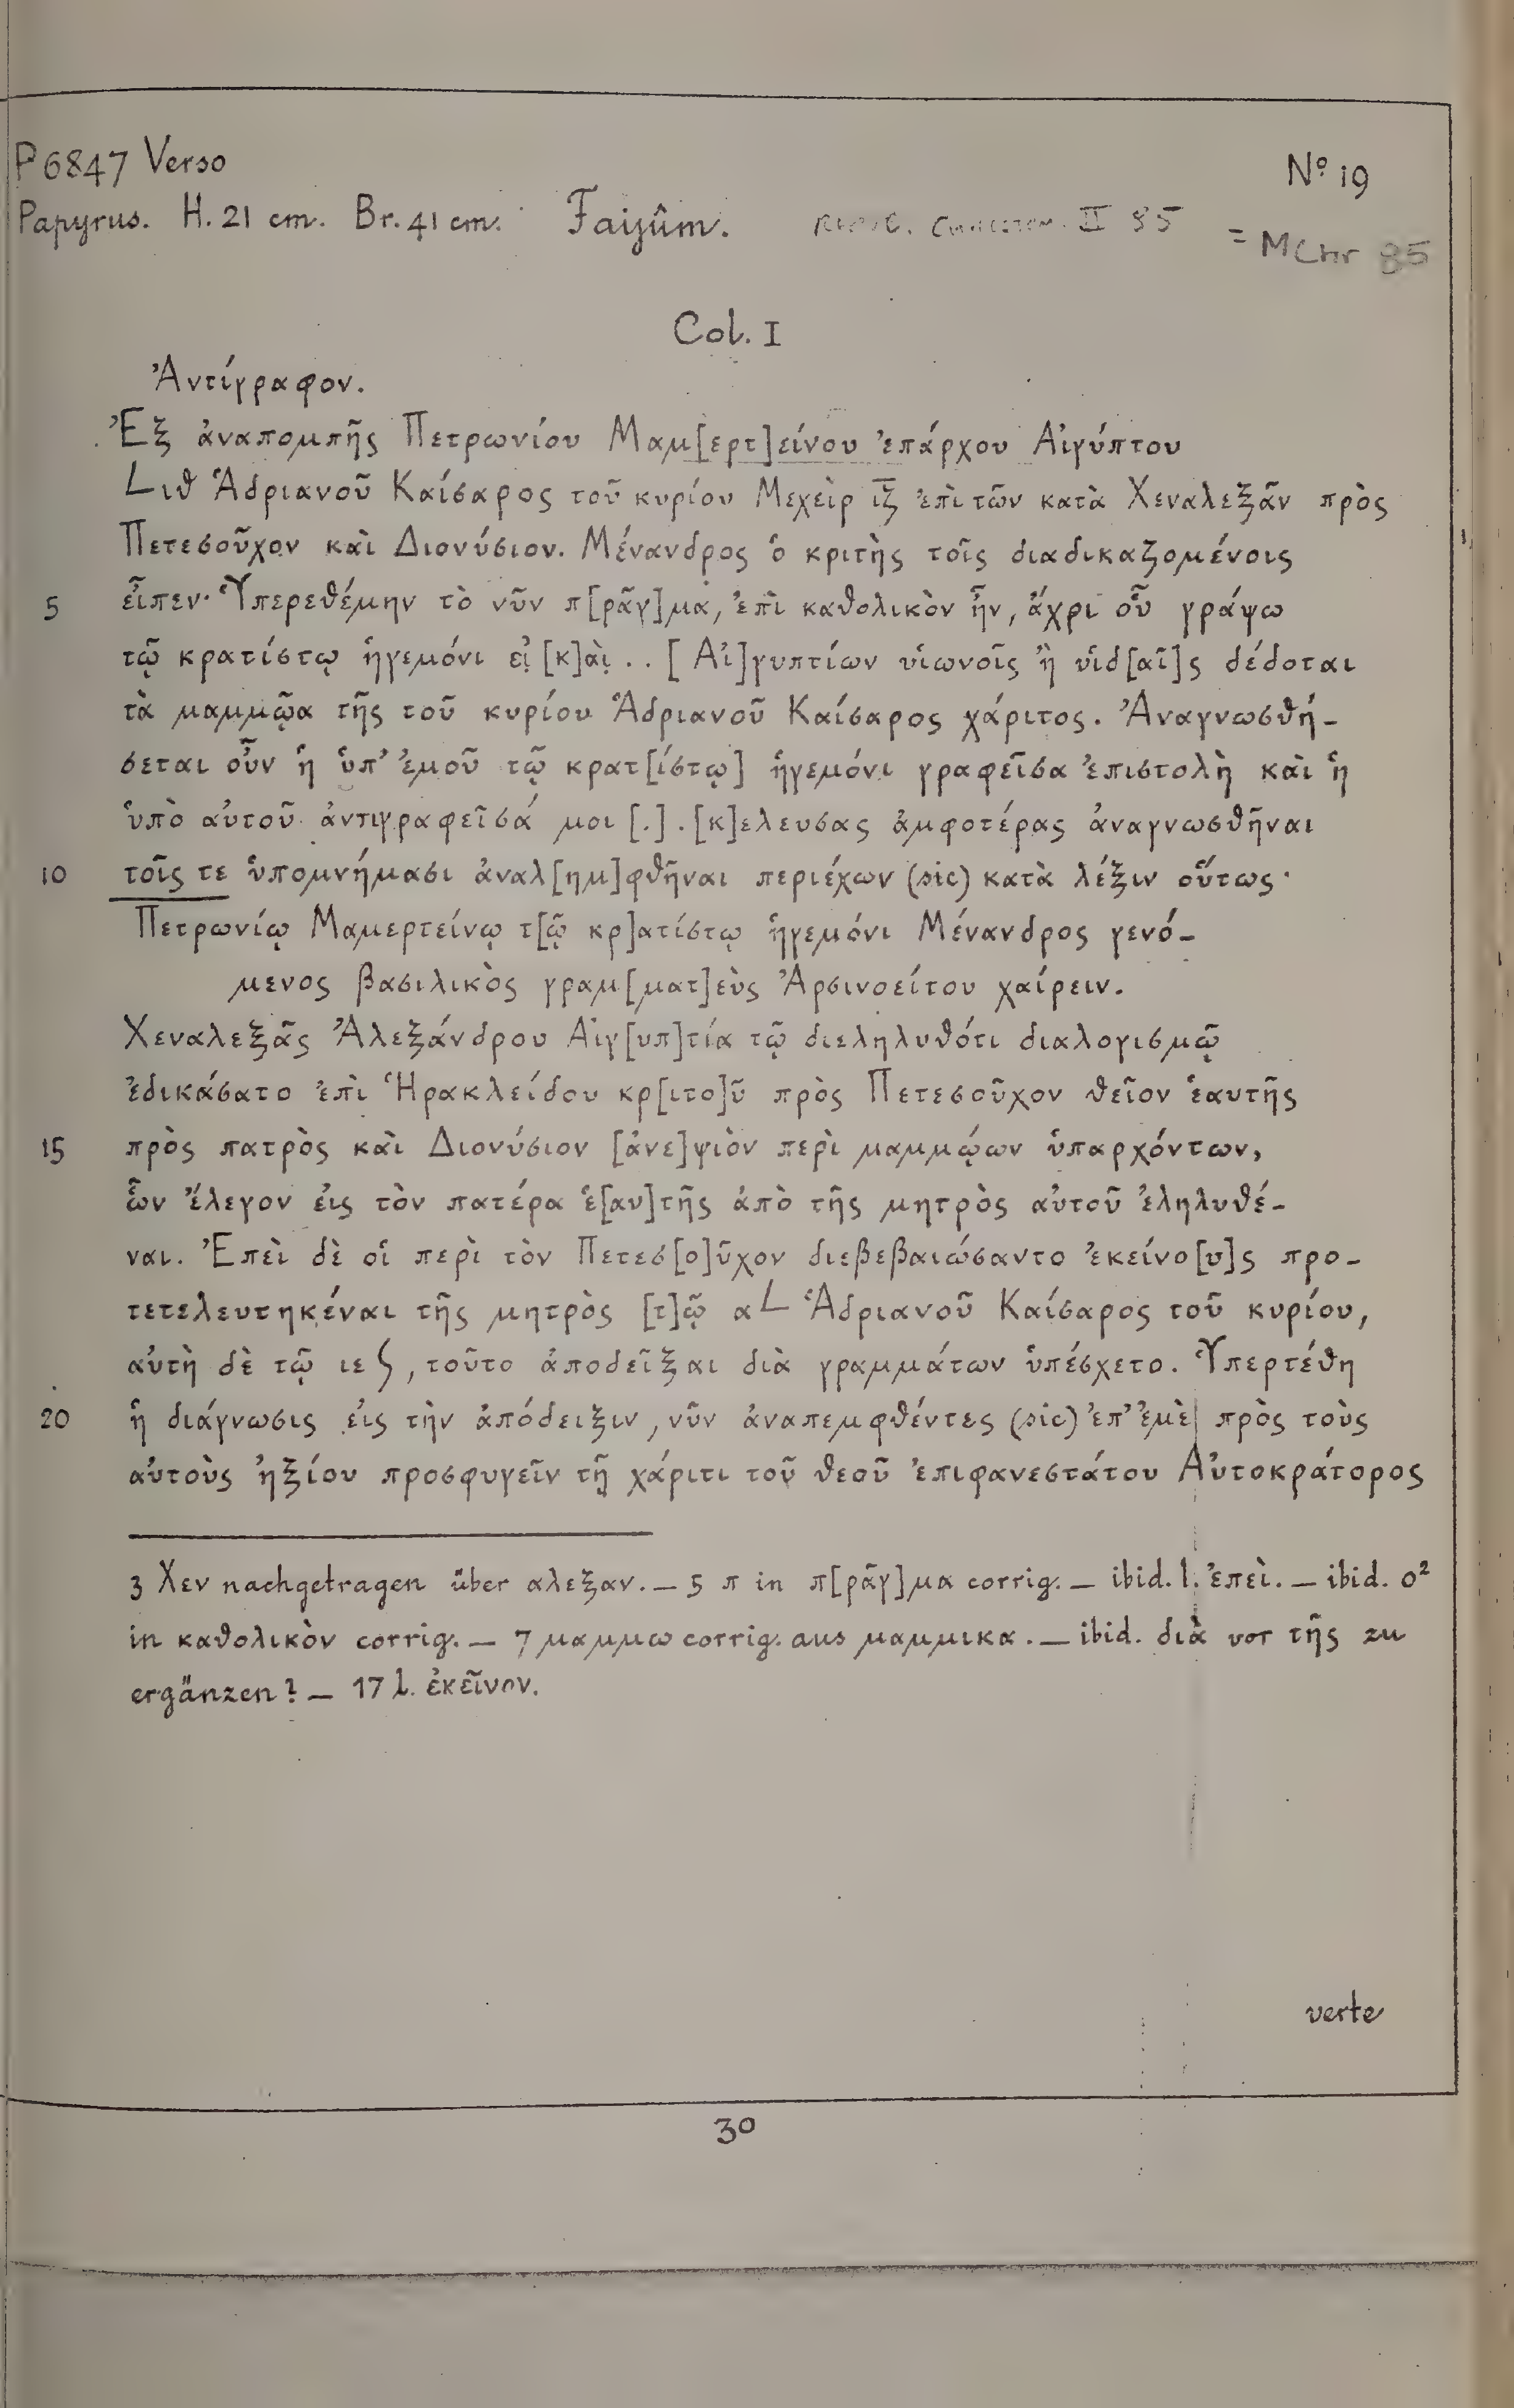 P 6847 Verso
Nº 19
Papyrus. H. 21 cm. Br. 41 cm. Faijûm. II 85
= MChr 85
Col. I
Ἀντίγραφον.
Ἐξ ἀναπομπῆς Πετρωνίου Μαμ[ερτ]είνου ἐπάρχου Αἰγύπτου
Lιθ Ἁδριανοῦ Καίσαρος τοῦ κυρίου Μεχεὶρ ιζ ἐπὶ τῶν κατὰ Χεναλεξᾶν πρὸς
Πετεσοῦχον καὶ Διονύσιον. Μένανδρος ὁ κριτὴς τοῖς διαδικαζομένοις
5 εἶπεν· Ὑπερεθέμην τὸ νῦν π[ρᾶγ]μα, ἐπὶ καθολικὸν ἦν, ἄχρι οὗ γράψω
τῷ κρατίστῳ ἡγεμόνι εἰ [κ]αὶ . . [Αἰ]γυπτίων υἱωνοῖς ἢ υἱδ[αῖ]ς δέδοται
τὰ μαμμῷα τῆς τοῦ κυρίου Ἁδριανοῦ Καίσαρος χάριτος. Ἀναγνωσθή-
σεται οὖν ἡ ὑπ' ἐμοῦ τῷ κρατ[ίστῳ] ἡγεμόνι γραφεῖσα ἐπιστολὴ καὶ ἡ
ὑπὸ αὐτοῦ ἀντιγραφεῖσά μοι [.] . [κ]ελευσας ἀμφοτέρας ἀναγνωσθῆναι
10 τοῖς τε ὑπομνήμασι ἀναλ[ημ]φθῆναι περιέχων (sic) κατὰ λέξιν οὕτως·
Πετρωνίῳ Μαμερτείνῳ τ[ῷ κρ]ατίστῳ ἡγεμόνι Μένανδρος γενό-
μενος βασιλικὸς γραμ[ματ]εὺς Ἀρσινοείτου χαίρειν.
Χεναλεξᾶς Ἀλεξάνδρου Αἰγ[υπ]τία τῷ διεληλυθότι διαλογισμῷ
ἐδικάσατο ἐπὶ Ἡρακλείδου κρ[ιτο]ῦ πρὸς Πετεσοῦχον θεῖον ἑαυτῆς
15 πρὸς πατρὸς καὶ Διονύσιον [ἀνε]ψιὸν περὶ μαμμῴων ὑπαρχόντων,
ὧν ἔλεγον εἰς τὸν πατέρα ἑ[αυ]τῆς ἀπὸ τῆς μητρὸς αὐτοῦ ἐληλυθέ-
ναι. Ἐπεὶ δὲ οἱ περὶ τὸν Πετεσ[ο]ῦχον διεβεβαιώσαντο ἐκείνο[υ]ς προ-
τετελευτηκέναι τῆς μητρὸς [τ]ῷ αL Ἁδριανοῦ Καίσαρος τοῦ κυρίου,
αὐτὴ δὲ τῷ ιεS, τοῦτο ἀποδεῖξαι διὰ γραμμάτων ὑπέσχετο. Ὑπερτέθη
20 ἡ διάγνωσις εἰς τὴν ἀπόδειξιν, νῦν ἀναπεμφθέντες (sic) ἐπ' ἐμὲ πρὸς τοὺς
αὐτοὺς ἠξίου προσφυγεῖν τῇ χάριτι τοῦ θεοῦ ἐπιφανεστάτου Αὐτοκράτορος
3 Χεν nachgetragen über αλεξαν. — 5 π in π[ρᾶγ]μα corrig. — ibid. l. ἐπεὶ. — ibid. ο²
in καθολικὸν corrig. — 7 μαμμω corrig. aus μαμμικα. — ibid. διὰ vor τῆς zu
ergänzen? — 17 l. ἐκεῖνον.
verte
30